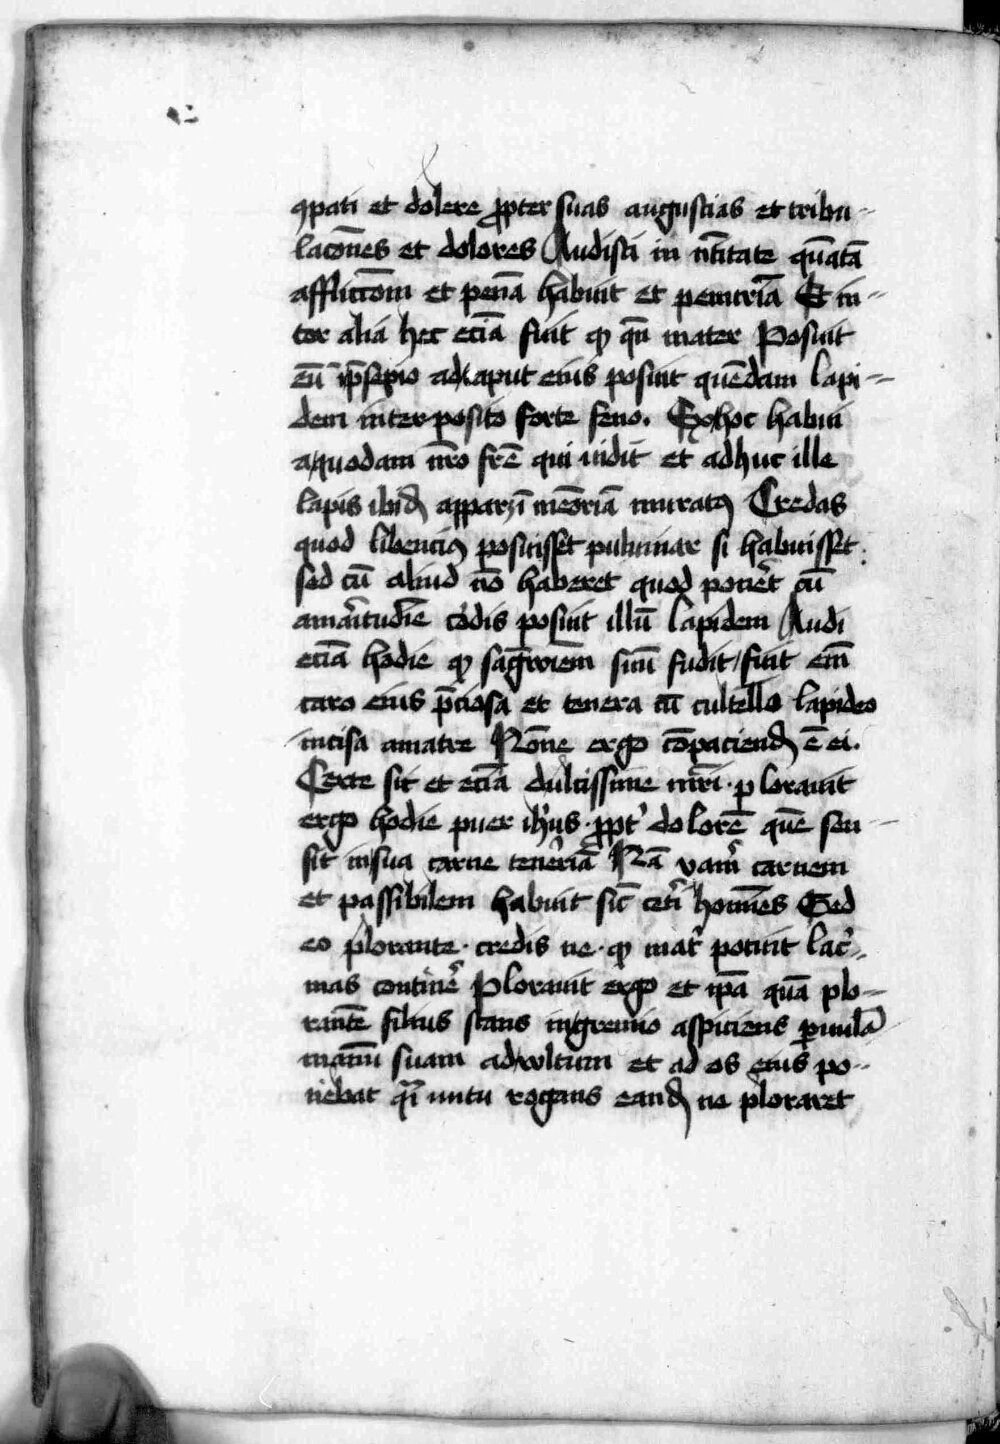 ꝯpati et dolere ꝓpter suas angustias et tribu-
lacōnes et dolores Audisti in nātitate quātā
afflictōm et penā habuit et penuriā Et in-
ter alia hec eciā fuit ꝙ qn̄ mater Posuit
eū ī p̄sepio ad caput eius posuit quēdam lapi-
dem inter posito forte feno. Ex hoc habui
a quodam nr̄o frē qui uidit et adhuc ille
lapis ibid apparꝫ ī meōriā muratꝰ Credas
quod libenciꝰ posuisset puluinar si habuisset.
sed cū aliud nō haberet quod ponet cū
amaritudīe cordis posuit illū lapidem Audi
eciā hodie ꝙ sagwiem suū fudit / fuit em̄
caro eius p̄ciosa et tenera cū cultello lapideo
incisa a matre Nōne ergo cōpaciend ē ei.
Certe sit et eciā dulcissime mr̄i. plorauit
ergo hodie puer ihus. ꝓpt dolorē quē sen-
sit in sua carne tenerīā Nā vam carnem
et passibilem habuit sic̄ ceti homīes Sed
eo plorante. credis ne. ꝙ mat potuit lac-
mas continē Plorauit ergo et ip̄a quā plo-
rantē filius stans in gremio aspiciens ꝑuulā
manū suam ad wltum et ad os eius po-
nebat q̄i nutu rogans eand ne ploraret